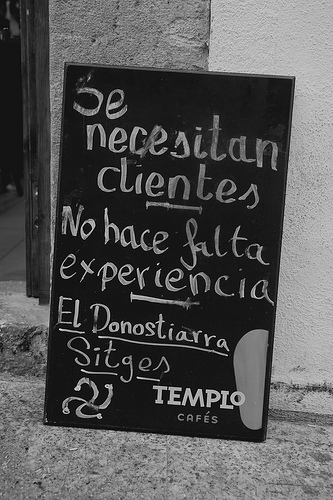 Se
necesitan
clientes
No hace falta
experiencia
El Donostiarra
Sitges
TEMPLO
CAFÉS